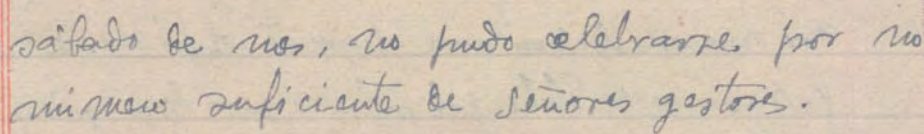 sábado de mes, no pudo celebrarse por no
número suficiente de señores gestores.